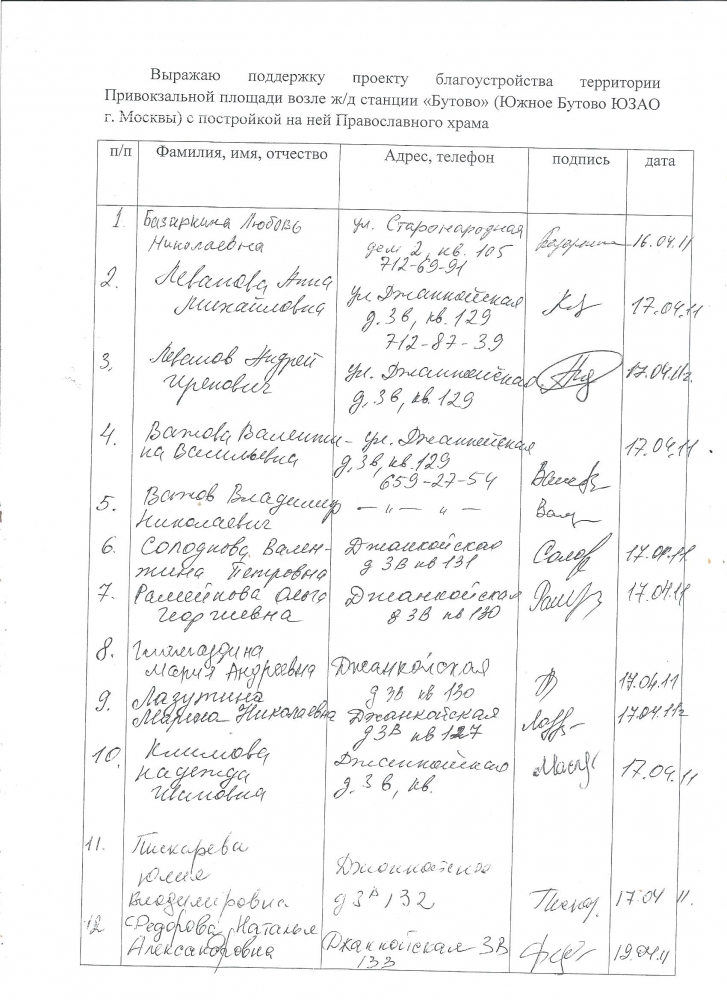 Выражаю поддержку проекту благоустройства территории
Привокзальной площади возле ж/д станции «Бутово» (Южное Бутово ЮЗАО
г. Москвы) с постройкой на ней Православного храма
п/п Фамилия, имя, отчество Адрес, телефон подпись дата
1. Базаркина Любовь ул. Старонародная
Николаевна дом 2, кв. 105 16.04.11
712-69-91
2. Леванова Анна ул Джанкойская
Михайловна д. 3в, кв. 129 17.04.11
712-87-39
3. Леванов Андрей ул. Джанкойская 17.04.11г.
д, 3в, кв. 129
4. Важова Валенти- ул. Джанкойская 17.04.11
на Васильевна д, 3в, кв. 129
659-27-54
5. Важов Владимир — " — " —
Николаевич
6. Солодкова Вален- Джанкойская 17.04.11
тина Петровна д 3В кв 131
7. Рамейкова Ольга Джанкойская 17.04.11
Георгиевна д 3В кв 130
8.
Мария Андреевна Джанкойская 17.04.11
9. Лазутина д 3В кв 130
Марина Николаевна Джанкойская 17.04.11г
д 3В кв 127
10. Климова Джанкойская 17.04.11
Надежда д. 3в, кв.
11. Пискарева
Юлия Джанкойская
Владимировна д 3В 132 17.04 11.
12 Федорова Наталья
Александровна Джанкойская 3В 19.04.11
133